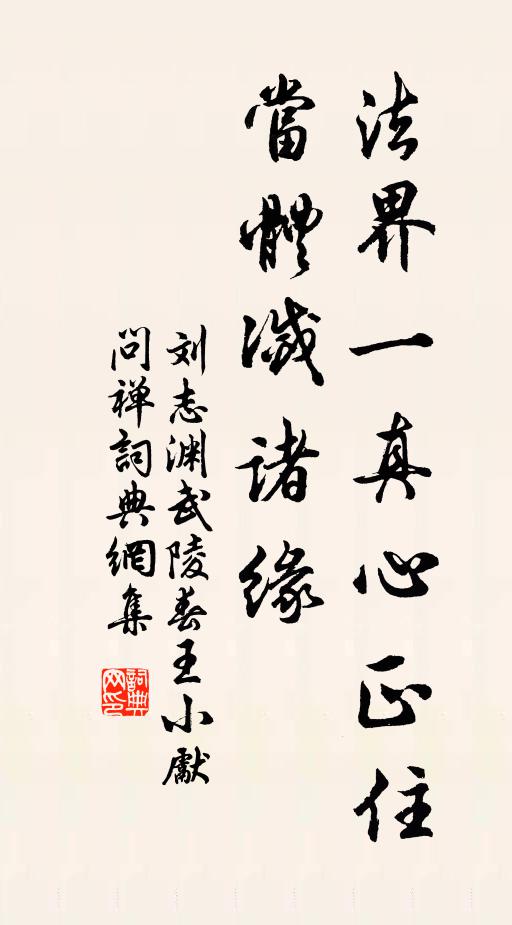 法界一真心正住
當體滅諸緣
刘志渊武陵春王小獻
问禅詞典網集
詞典网印